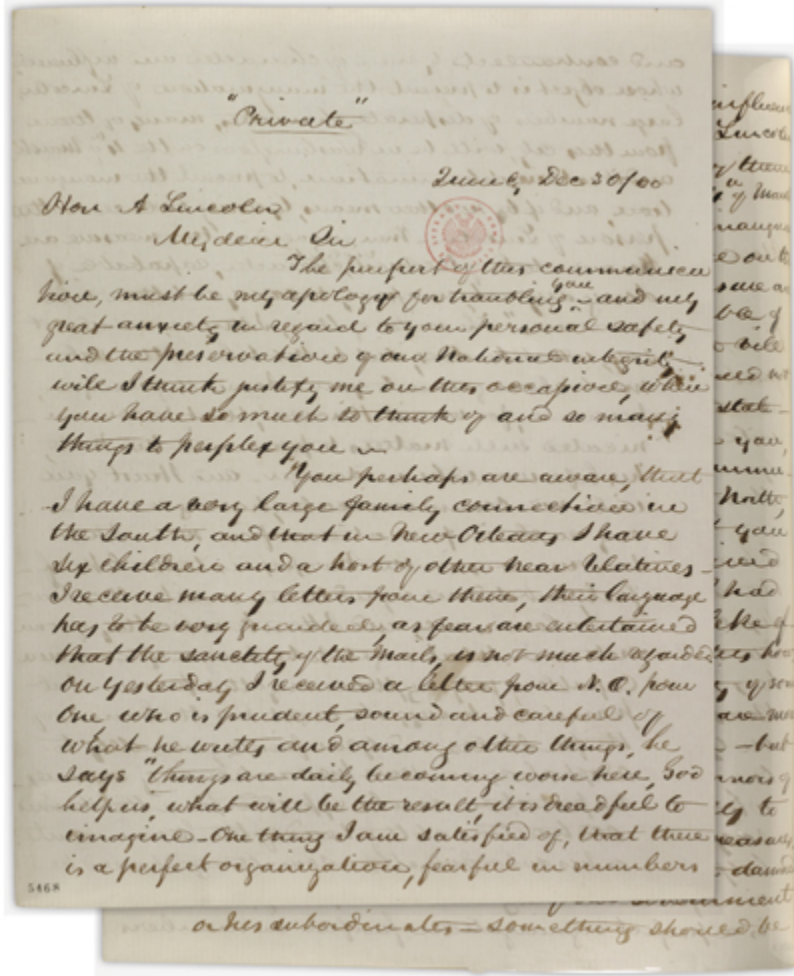 "Private"
Quincy, Dec 30/60
Hon A Lincoln,
My dear Sir
The purport of this communica
tion, must be my apology for troubling you - and my
great anxiety in regard to your "personal" safety
and the preservation of our National integrity
will I think justify me on this occasion, when
you have so much to think of and so many
things to perplex you
You perhaps are aware, that
I have a very large family connection in
the South, and that in New Orleans I have
six children and a host of other near relatives -
I receive many letters from them, their language
has to be very guarded, as fears are entertained
that the sanctity of the Mails, is not much regarded
On yesterday I received a letter from N. O. from
One who is prudent, sound and careful of
what he writes and among other things, he
says "things are daily becoming worse here, God
help us, what will be the result, it is dreadful to
imagine - One thing I am satisfied of, that there
is a perfect organization, fearful in numbers
5468
Lincoln
North,
you
had
to
or his subordinates - something should be